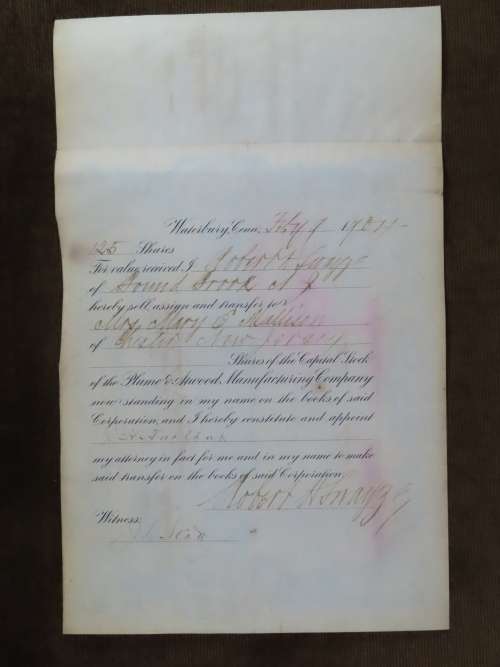 Waterbury, Conn. Feby 9 1904
125 Shares
For value received I Robert
of Bound Brook N J
hereby sell assign and transfer to
Mrs. Mary E.
of Chester New Jersey
Shares of the Capital Stock
of the Plume & Atwood Manufacturing Company
now standing in my name on the books of said
Corporation, and I hereby constitute and appoint
my attorney in fact for me and in my name to make
said transfer on the books of said Corporation.
Robert
Witness: